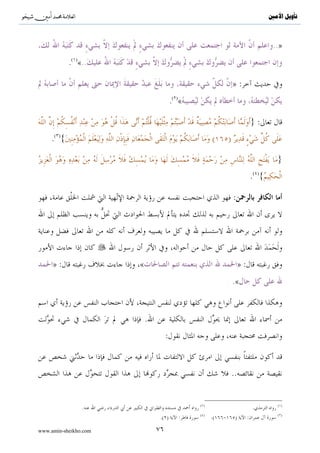 تأويل الأمين
العلامة محمد أمين شيخو
«.. واعلم أن الأمة لو اجتمعت على أن ينفعوك بشيء لم ينفعوك إلا بشيء قد كتبه الله لك،
وإن اجتمعوا على أن يضروك بشيء لم يضروك إلا بشيء قد كتبه الله عليك..»(١).
وفي حديث آخر: «إن لكل شيء حقيقة، وما بلغ عبد حقيقة الإيمان حتى يعلم أن ما أصابه لم
يكن ليخطئه، وما أخطأه لم يكن ليصيبه»(٢).
قال تعالى: {أَوَلَمَّا أَصَابَتْكُم مُّصِيبَةٌ قَدْ أَصَبْتُم مِّثْلَيْهَا قُلْتُمْ أَنَّى هَذَا قُلْ هُوَ مِنْ عِندِ أَنْفُسِكُمْ إِنَّ اللَّهَ
عَلَى كُلِّ شَيْءٍ قَدِيرٌ (١٦٥) وَمَا أَصَابَكُمْ يَوْمَ الْتَقَى الْجَمْعَانِ فَبِإِذْنِ اللَّهِ وَلِيَعْلَمَ الْمُؤْمِنِينَ}(٣).
{مَا يَفْتَحِ اللَّهُ لِلنَّاسِ مِن رَّحْمَةٍ فَلَا مُمْسِكَ لَهَا وَمَا يُمْسِكْ فَلَا مُرْسِلَ لَهُ مِنْ بَعْدِهِ وَهُوَ الْعَزِيزُ
الْحَكِيمُ}(٤).
أما الكافر بالرحمن: فهو الذي احتجبت نفسه عن رؤية الرحمة الإلهية التي شملت الخلق عامة، فهو
لا يرى أن الله تعالى رحيم به لذلك تجده يتألم لأبسط الحوادث التي تحل به وينسب الظلم إلى الله
ولو أنه آمن برحمة الله لاستسلم لله في كل ما يصيبه ولعرف أنه كله من الله تعالى فضل وعناية
ولحمد الله تعالى على كل حال من أحواله، وفي الأثر أن رسول الله ﷺ كان إذا جاءت الأمور
وفق رغبته قال: «الحمد لله الذي بنعمته تتم الصالحات»، وإذا جاءت بخلاف رغبته قال: «الحمد
لله على كل حال».
وهكذا فالكفر على أنواع وهي كلها تؤدي لنفس النتيجة، لأن احتجاب النفس عن رؤية أي اسم
من أسماء الله تعالى إنما يحول النفس بالكلية عن الله. فإذا هي لم تر الكمال في شيء تحولت
وانصرفت محتجبة عنه، وعلى وجه المثال نقول:
قد أكون ملتفتا بنفسي إلى امرئ كل الالتفات لما أراه فيه من كمال فإذا ما حدثني شخص عن
نقيصة من نقائصه.. فلا شك أن نفسي بمجرد ركونها إلى هذا القول تتحول عن هذا الشخص
(١) رواه الترمذي.
(٢) رواه أحمد في مسنده والطبراني في الكبير عن أبي الدرداء رضي الله عنه.
(٣) سورة آل عمران: الآية (١٦٥-١٦٦).
(٤) سورة فاطر: الآية (٢).
٧٦
www.amin-sheikho.com